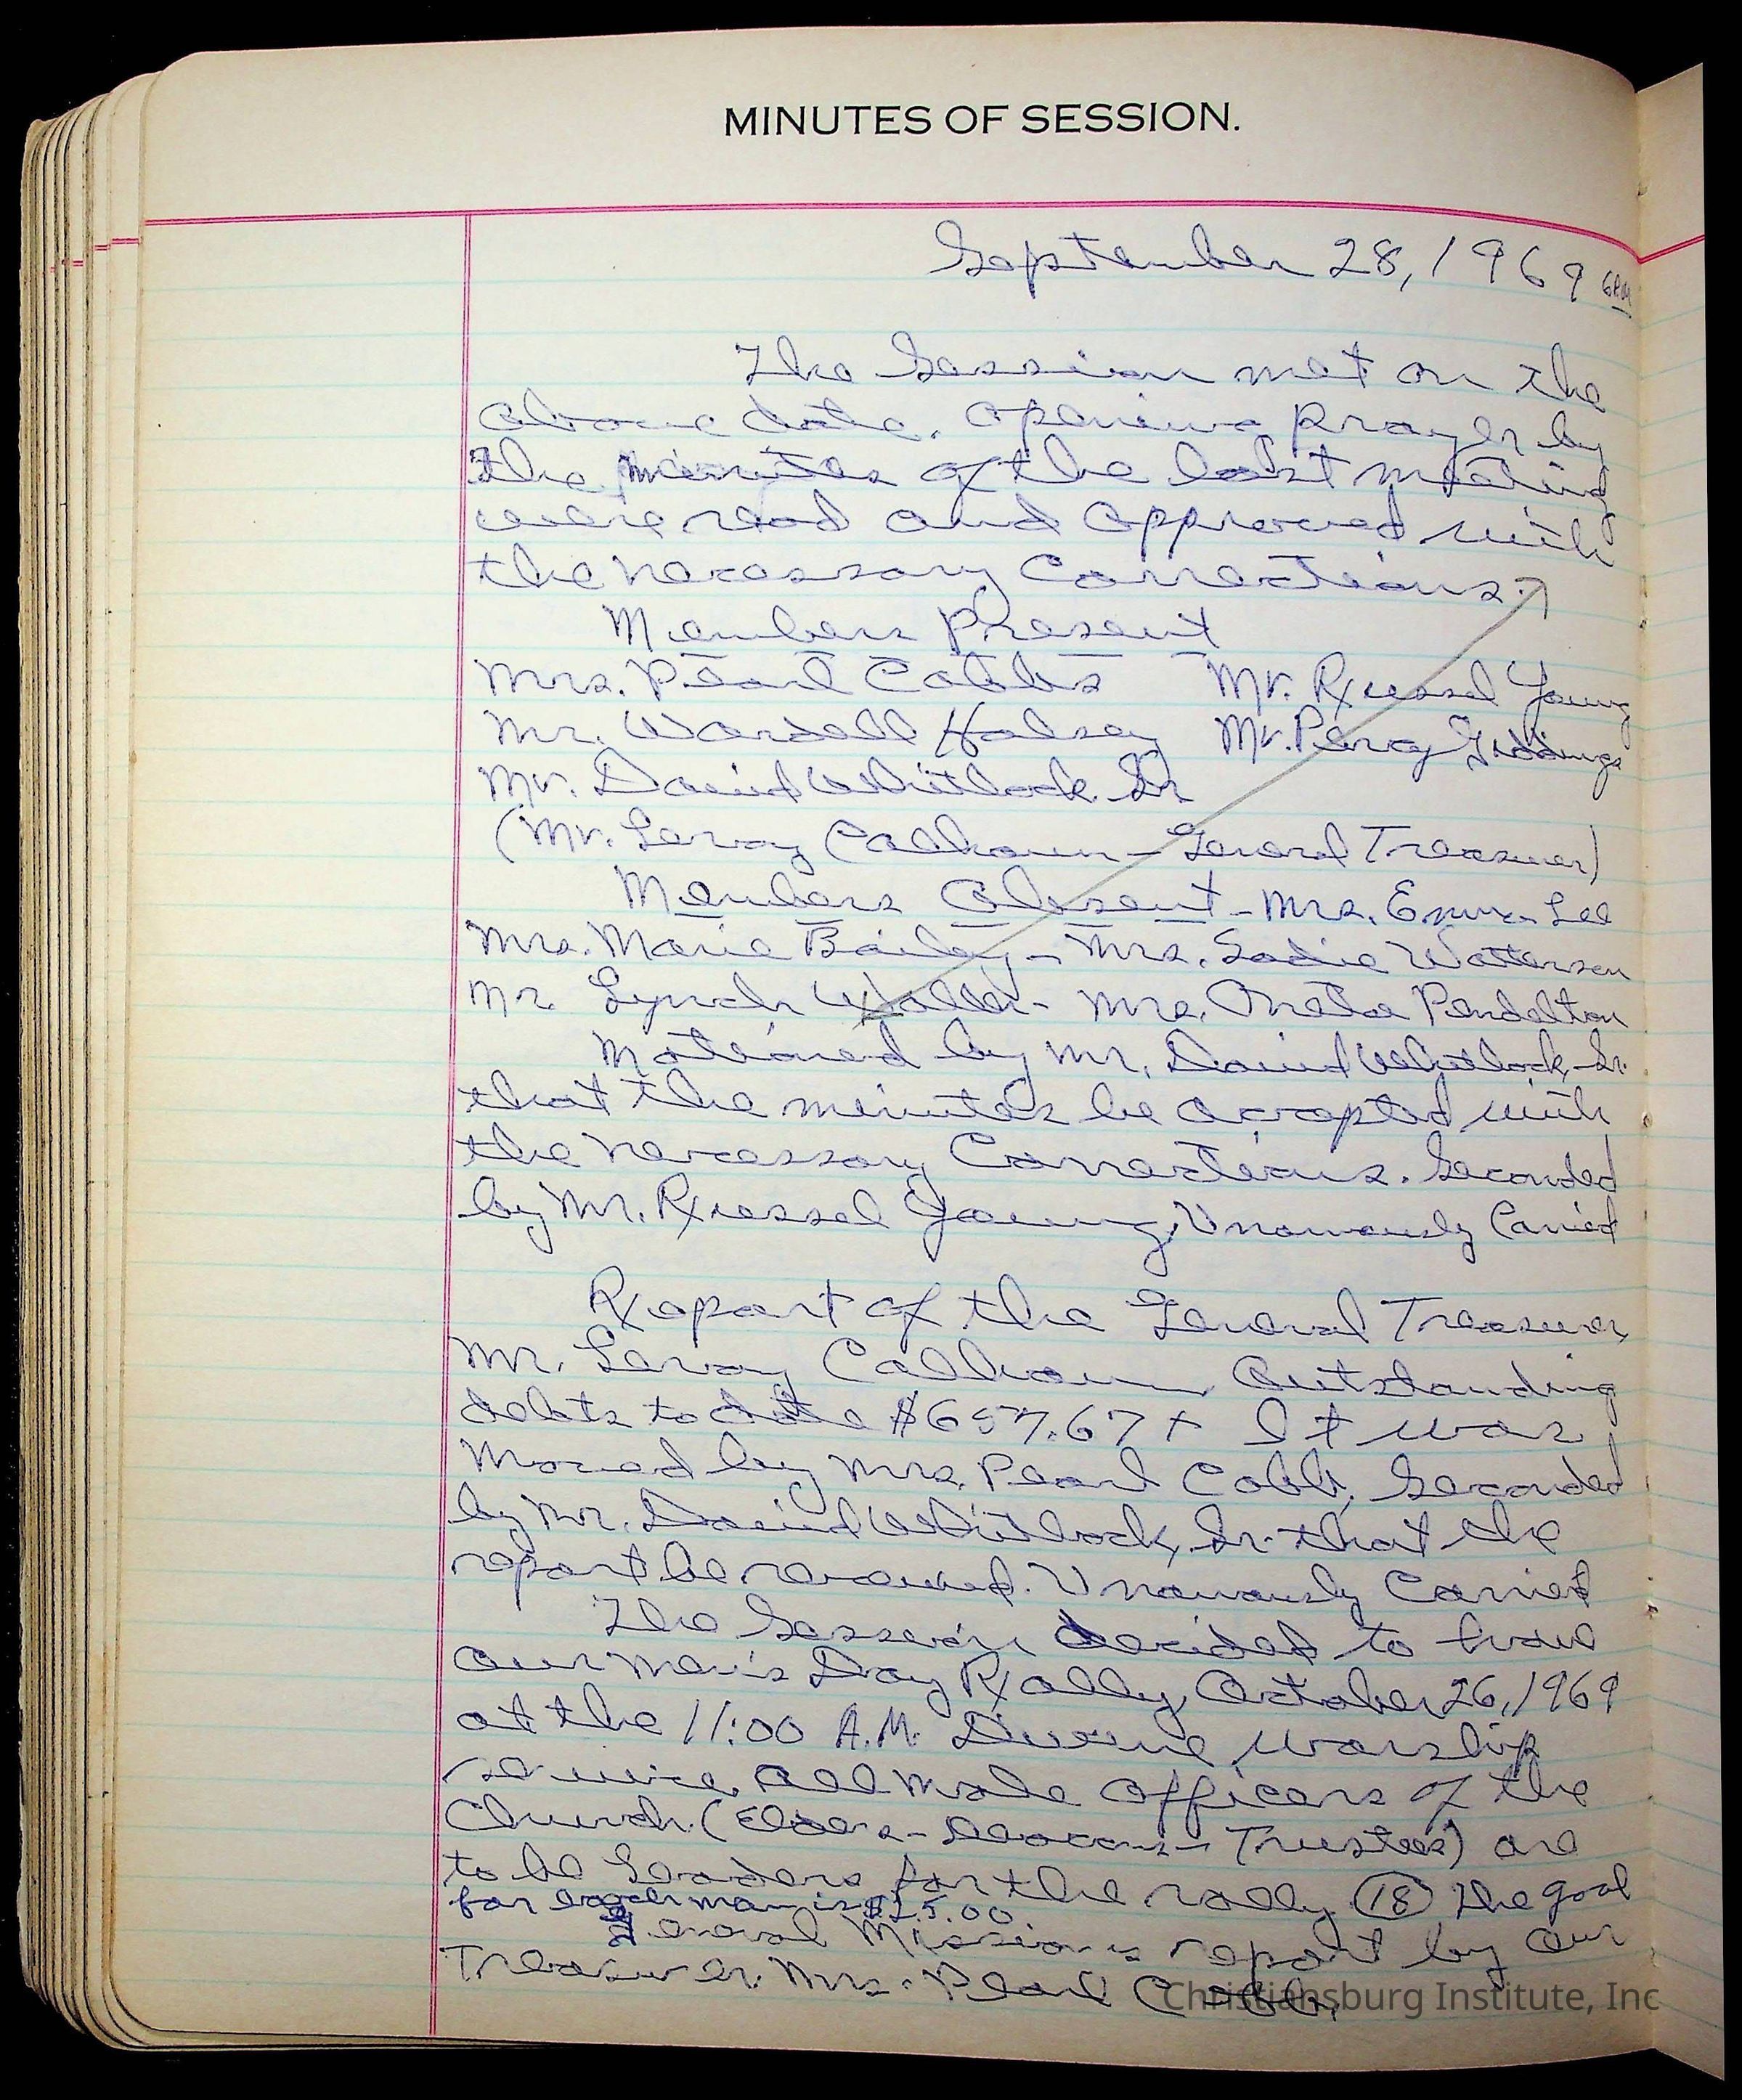 MINUTES OF SESSION.
September 28, 1969 6PM
The Session met on the
above date. Opening Prayer by
The minutes of the last meeting
were read and approved with
the necessary Corrections.
Members Present
Mrs. Pearl Cobbs Mr. Russel Young
Mr. Wardell Halsey Mr. Percy Giddings
Mr. David Whitlock Sr
(Mr. Leroy Calhoun - General Treasurer)
Members Absent - Mrs. Emma Lee
Mrs. Marie Bailey - Mrs. Sadie Watterson
Mr Lynch Waller - Mrs. Oneta Pendelton
Motioned by Mr. David Whitlock, Sr.
that the minutes be accepted with
the necessary Corrections. Seconded
by Mr. Russel Young, Unamously Carried
Report of the General Treasurer,
Mr. Leroy Calhoun, Outstanding
debts to date $657.67+ It was
Moved by Mrs. Pearl Cobb. Seconded
by Mr. David Whitlock, Sr. that the
report be received. Unamously Carried
The Session decided to have
our Men's Day Rally, October 26, 1969
at the 11:00 A.M. Divine Worship
service. All Male officers of the
Church (Elders - Deacons - Trustees) are
to be Leaders for the rally. (18) The goal
for each man is $25.00.
General Missions report by our
Treasurer. Mrs. Pearl Cobb.
Christiansburg Institute, Inc